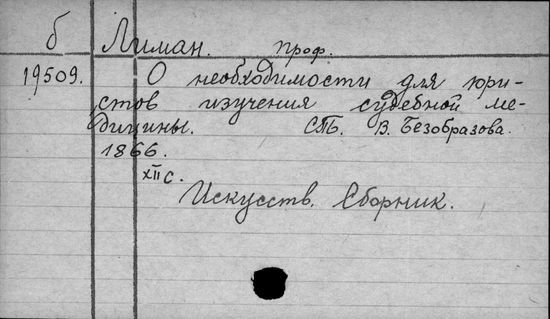 б Лиман. проф.
19509. О необходимости для юри-
стов изучения судебной ме-
дицины. СПБ. В. Безобразова.
1866.
XII с.
Искусств. Сборник.